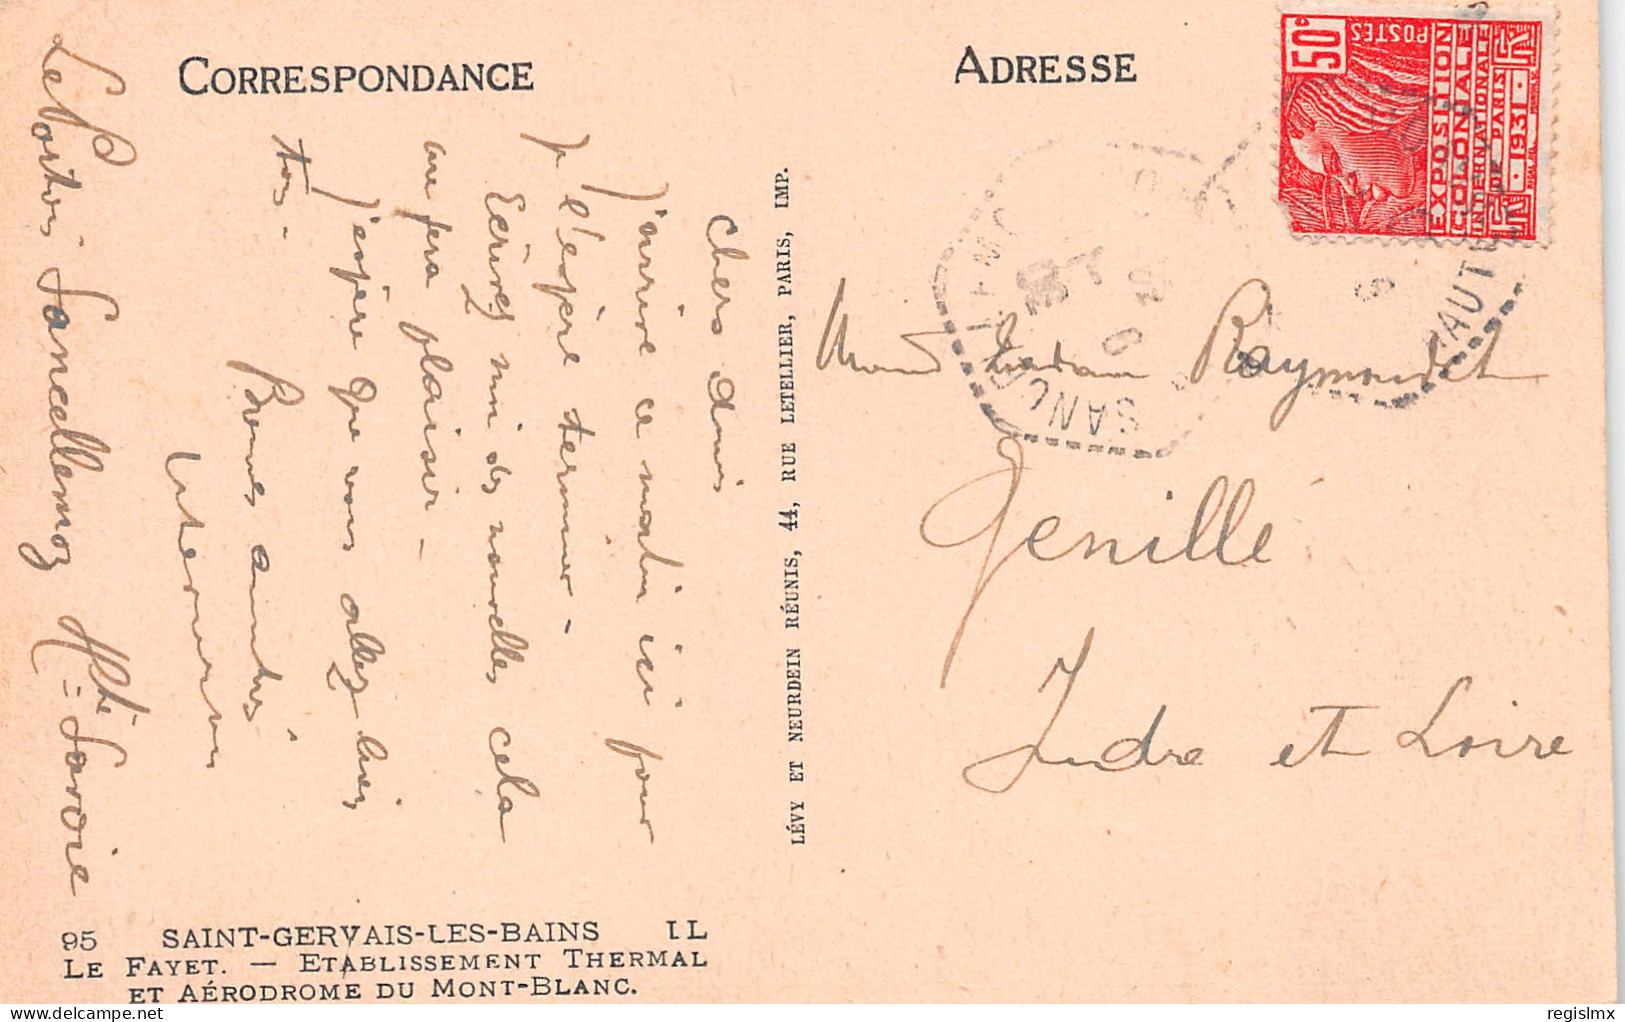 CORRESPONDANCE
Chers amis
J'arrive ce matin ici pour
je l'espère terminer -
Ecrivez moi des nouvelles cela
me fera plaisir -
J'espère que vous allez bien
tous -
Bonnes amitiés
Le Portier Sancellemoz Hte-Savoie
95 SAINT-GERVAIS-LES-BAINS LL
LE FAYET. — ETABLISSEMENT THERMAL
ET AÉRODROME DU MONT-BLANC.
LÉVY ET NEURDEIN RÉUNIS, 44, RUE LETELLIER, PARIS, IMP.
ADRESSE
50c
POSTES
EXPOSITION
COLONIALE
INTERNATIONALE
DE PARIS
1931
SANC
HAUTE
Madame Raymondet
Genillé
Indre et Loire
regislmx